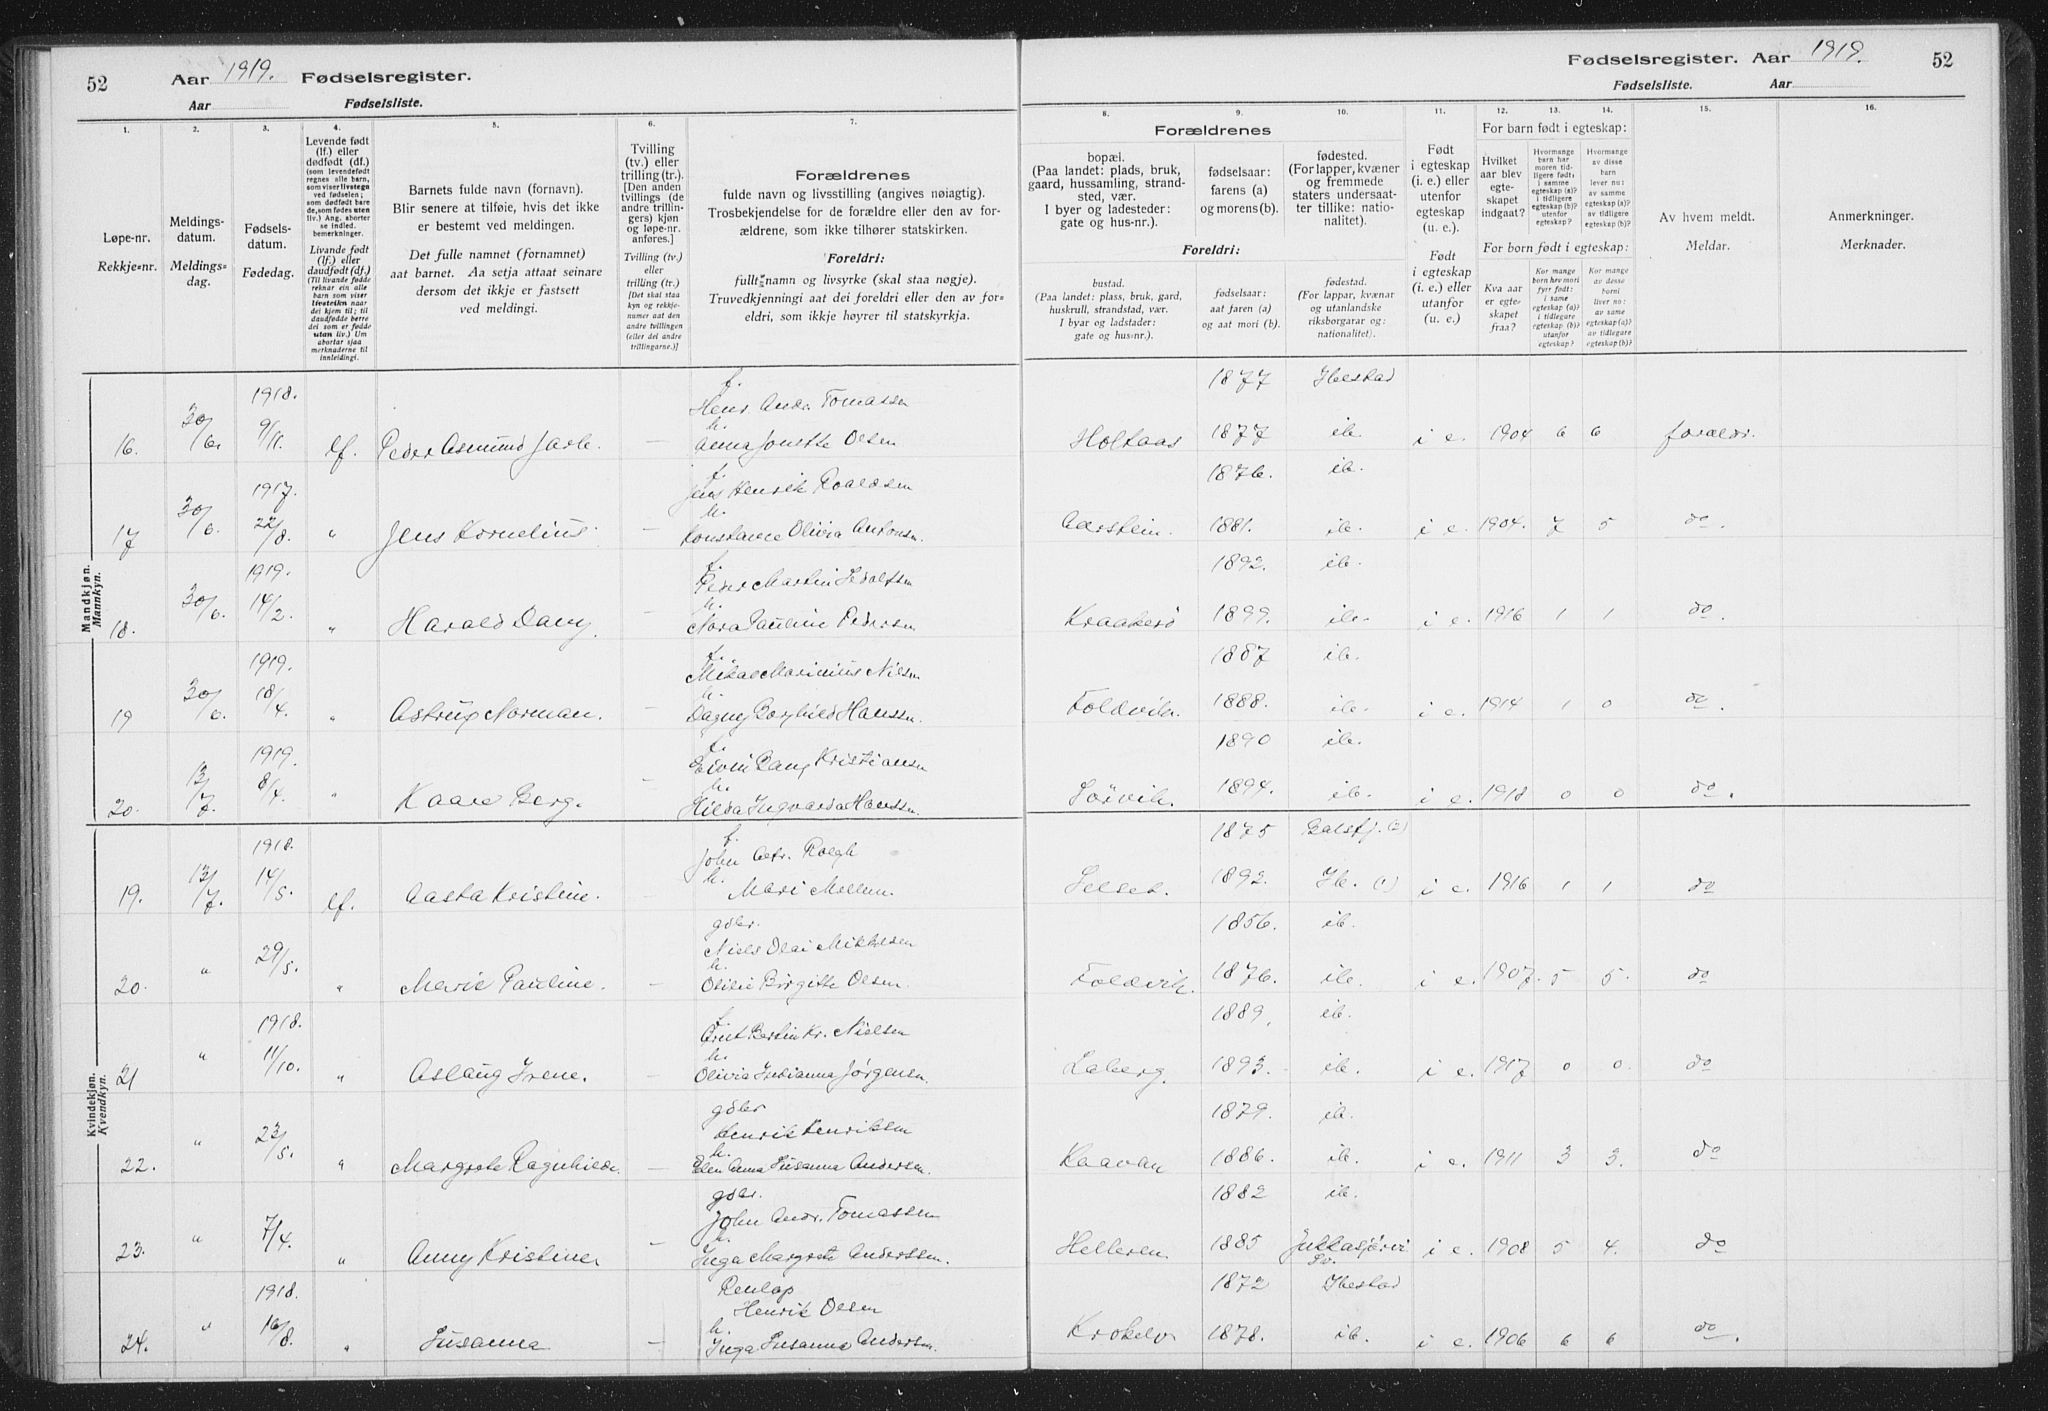 52
Aar 1919. Fødselsregister.
Aar Fødselsliste.
Fødselsregister. Aar 1919.
52
Fødselsliste. Aar
1.
2.
3.
4.
5.
6.
7.
8.
9.
10.
11.
12.
13.
14.
15.
16.
Løpe-nr.
Rekkje-nr.
Meldings-
datum.
Meldings-
dag.
Fødsels-
datum.
Fødedag.
Levende født
(lf.) eller
dødfødt (df.)
(som levendefødt
regnes alle barn,
som viser livstegn
ved fødselen;
som dødfødt bare
de, som fødes uten
liv.) Ang. aborter
se indled.
bemerkninger.
Livande født
(lf.) eller
daudfødt (df.)
(Til livande fødde
reknar ein alle
barn som viser
livsteikn naar
dei kjem til; til
daudfødde berre
dei som er fødde
utan liv.) Um
abortar sjaa
merknaderne til
innleidingi.
Barnets fulde navn (fornavn).
Blir senere at tilføie, hvis det ikke
er bestemt ved meldingen.
Det fulle namnet (fornamnet)
aat barnet. Aa setja attaat seinare
dersom det ikkje er fastsett
ved meldingi.
Tvilling
(tv.) eller
trilling (tr.).
[Den anden
tvillings (de
andre trillin-
gers) kjøn
og løpe-nr.
anføres.]
Tvilling (tv.)
eller
trilling (tr.)
[Det skal staa
kyn og rekkje-
numer aat den
andre tvillingen
(eller dei andre
trillingarne.)]
Forældrenes
fulde navn og livsstilling (angives nøiagtig).
Trosbekjendelse for de forældre eller den av for-
ældrene, som ikke tilhører statskirken.
Foreldri:
fullt namn og livsyrke (skal staa nøgje).
Truvedkjenningi aat dei foreldri eller den av for-
eldri, som ikkje høyrer til statskyrkja.
Forældrenes
bopæl.
(Paa landet: plads, bruk,
gaard, hussamling, strand-
sted, vær.
I byer og ladesteder:
gate og hus-nr.).
fødselsaar:
farens (a)
og morens (b).
fødested.
(For lapper, kvæner
og fremmede
staters undersaat-
ter tillike: natio-
nalitet).
Foreldri:
bustad.
(Paa landet: plass, bruk, gard,
huskrull, strandstad, vær.
I byar og ladstader:
gate og hus-nr.).
fødselsaar:
aat faren (a)
og aat mori (b).
fødestad.
(For lappar, kvænar
og utanlandske
riksborgarar og:
nationalitet).
Født
i egteskap
(i. e.) eller
utenfor
egteskap
(u. e.).
Født
i egteskap
(i. e.) eller
utanfor
(u. e.)
For barn født i egteskap:
Hvilket
aar blev
egte-
skapet
indgaat?
Hvormange
barn har
moren tid-
ligere født,
i samme
egteskap (a)?
i tidligere
egteskap (b)?
utenfor
egteskap?
Hvormange
av disse
barn
lever nu:
av samme
egteskap (a)?
av tidligere
egteskap (b)?
For born født i egteskap:
Kva aar
er egte-
skapet
fraa?
Kor mange
born hev mori
fyrr født:
i same
egteskap (a)?
i tidlegare
egteskap (b)?
utanfor
egteskap?
Kor mange
av desse
borni
liver no:
av same
egteskap (a)?
av tidlegare
egteskap (b)?
Av hvem meldt.
Meldar.
Anmerkninger.
Merknader.
Mandkjøn.
Mannkyn.
1918. f. 1877 Ibestad
30/6. 9/11. Henr. Andr. Tomassen
16. lf. Peder Asmund Jarle. — h. Anna Jonette Olsen Holtaas 1877 ib. i e. 1904 6 6 foreldr.
1917. f. 1876. ib.
30/6. 22/8. Jens Henrik Roaldsen
17 „ Jens Kornelius. — h. Konstance Olivia Antonsen. Aarstein. 1881. ib. i e. 1904. 7 5 do.
1919. f. 1892. ib.
30/6. 14/2. Peder Martin Sedolfsen
18. „ Harald Dany — h. Nora Pauline Pedersen Kraakerø 1899. ib. i e. 1916 1 1 do.
1919. f. 1887 ib.
30/6. 18/4. Mikal Marinius Nilsen
19 „ Astrup Norman. — h. Dagny Borghild Hanssen Foldvik. 1888. ib. i e. 1914 1 0 do.
1919. f. 1890 ib.
13/7. 8/4. Kristiansen
20. „ Kaare Berg. — h. Hilda Ingvarda Hanssen. Sørvik. 1894. ib. i e. 1918 0 0 do.
Kvindekjøn.
Kvendkyn.
1918. f. 1875 Balsfj. (2)
13/7. 14/5. John
19. lf. Aasta Kristine. — h. Mari Mellem. Selset. 1892. Ib. (1) i e. 1916 1 1 do
gdbr. 1856. ib.
„ 29/5. Niels Olai Mikkelsen
20. „ Marie Pauline. — h. Olilie Birgitte Olsen. Foldvik. 1876. ib. i e. 1907. 5 5. do
1918. f. 1889. ib.
„ 11/10. Bertin Kr. Nielsen
21 „ Aslaug Irene. — h. Olivia Indianna Jørgensen. Laberg. 1893. ib. i e. 1917 0 0. do
gdbr 1879. ib.
„ 23/5. Henrik Henriksen
22. „ Margrete Ragnhilde. — h. Elen Anna Susanna Andersen. Kaavan 1886. ib. i e. 1911 3 3. do
gdbr. 1882 ib.
„ 7/4. John Andr. Tomassen
23. „ Anny Kristine — h. Inga Margrete Anderssen. Helleren. 1885 Jukkasjärvi Sv. i e. 1908 5 4. do
1918. Renlap 1872 Ibestad
„ 16/8. Henrik Olsen
24. „ Susanna — h. Inga Susanna Andersen. Krokelv 1878. ib. i e. 1906 6 6 do.